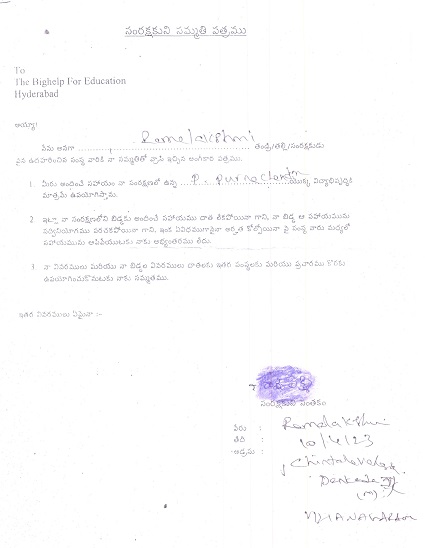 సంరక్షకుని సమ్మతి పత్రము
To
The Bighelp For Education
Hyderabad
అయ్యా!
నేను అనగా Ramalakshmi తండ్రి/తల్లి/సంరక్షకుడు
పైన ఉదహరించిన సంస్థ వారికి నా సమ్మతితో వ్రాసి ఇచ్చిన అంగీకార పత్రము.
1. మీరు అందించే సహాయం నా సంరక్షణలో ఉన్న P. Purnachandu యొక్క విద్యాభివృద్ధికి
మాత్రమే ఉపయోగిస్తాను.
2. ఇట్లా నా సంరక్షణలోని బిడ్డకు అందించే సహాయము దాత లేకపోయినా గాని, నా బిడ్డ ఆ సహాయమును
సద్వినియోగము పరచకపోయినా గాని, ఇంక ఏవిధముగానైనా అర్హత కోల్పోయినా పై సంస్థ వారు మధ్యలో
సహాయమును ఆపివేయుటకు నాకు అభ్యంతరము లేదు.
3. నా వివరములు మరియు నా బిడ్డల వివరములు దాతలకు ఇతర సంస్థలకు మరియు ప్రచారము కొరకు
ఉపయోగించుకొనుటకు నాకు సమ్మతము.
ఇతర వివరములు ఏమైనా :-
సంరక్షకుని సంతకం
పేరు : Ramalakshmi
తేది : 10/4/23
అడ్రసు : Chintalavalasa
Denkada
(M)
VIZIANAGARAM